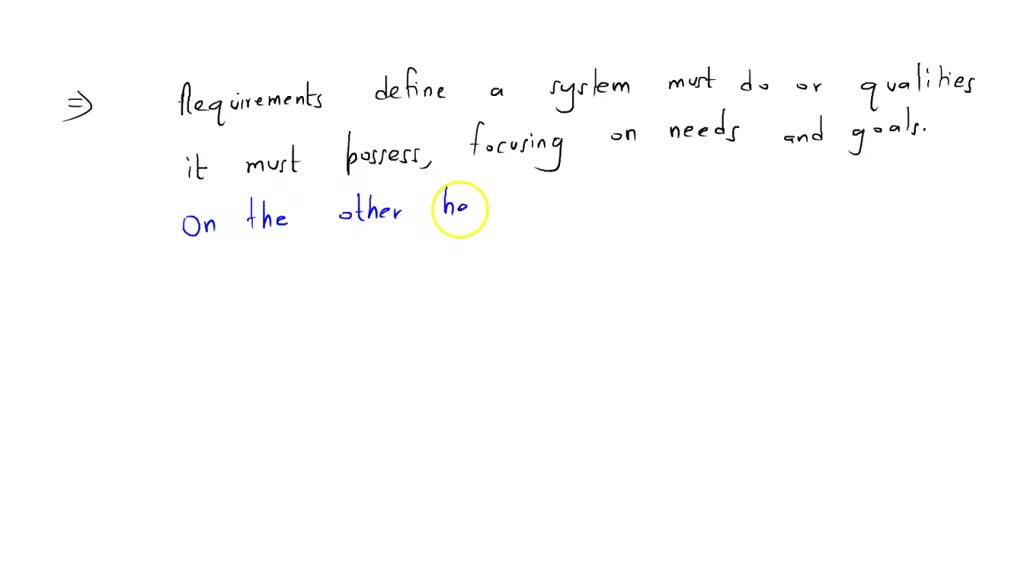 ⇒ Requirements define a system must do or qualities
it must possess, focusing on needs and goals.
On the other ha